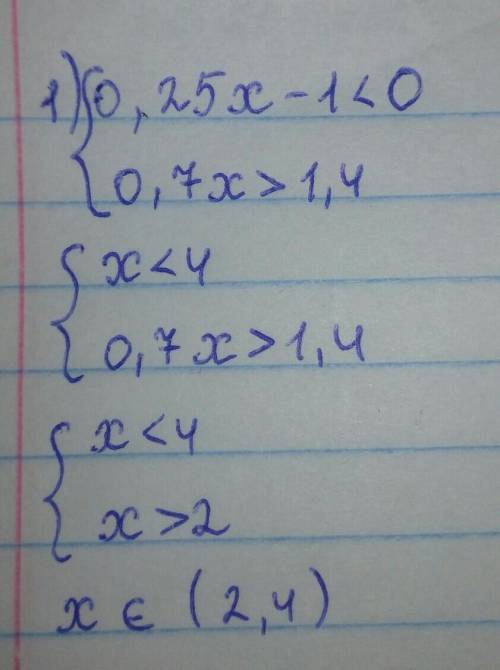 1) { 0,25x - 1 < 0
0,7x > 1,4
{ x < 4
0,7x > 1,4
{ x < 4
x > 2
x ∈ (2,4)